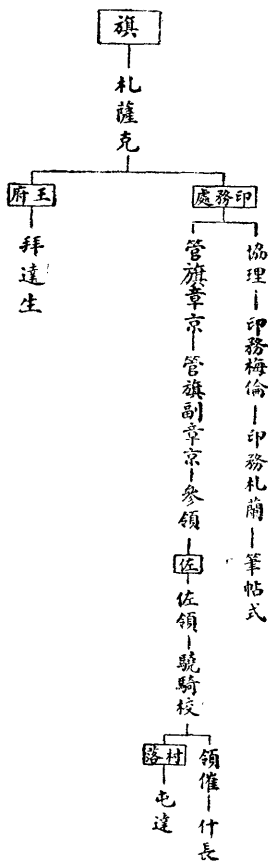 旗
札薩克
印務處
王府
協理—印務梅倫—印務札蘭—筆帖式
管旗章京—管旗副章京—參領
佐
佐領—驍騎校
領催—什長
村落
屯達
拜達生